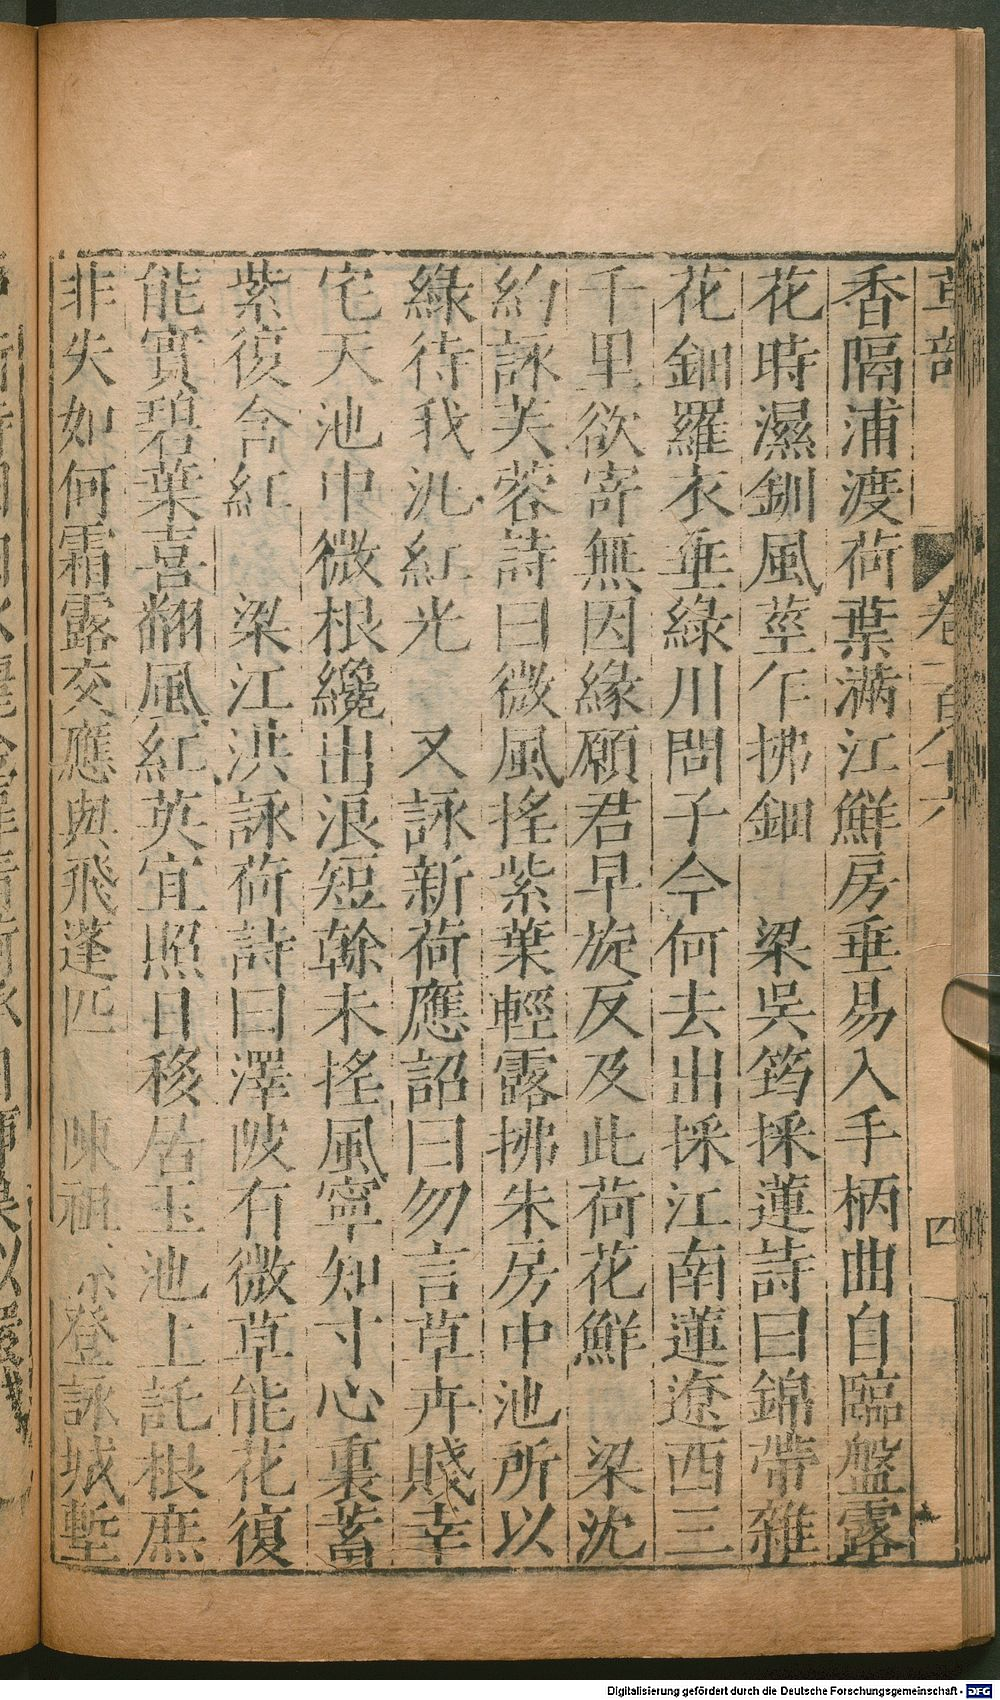 草部 卷一百八十六 四
香隔浦渡荷葉滿江鮮房垂易入手柄曲自臨盤露
花時濕釧風莖乍拂鈿 梁吳筠採蓮詩曰錦帶雜
花鈿羅衣垂綠川問子今何去出採江南蓮遼西三
千里欲寄無因緣願君早旋反及此荷花鮮 梁沈
約詠芙蓉詩曰微風搖紫葉輕露拂朱房中池所以
綠待我汎紅光 又詠新荷應詔曰勿言草卉賤幸
宅天池中微根纔出浪短榦未搖風寧知寸心裏蓄
紫復含紅 梁江洪詠荷詩曰澤陂有微草能花復
能實碧葉喜翻風紅英宜照日移居玉池上託根庶
非失如何霜露交應與飛蓬匹 陳祖孫登詠城塹
Digitalisierung gefördert durch die Deutsche Forschungsgemeinschaft - DFG